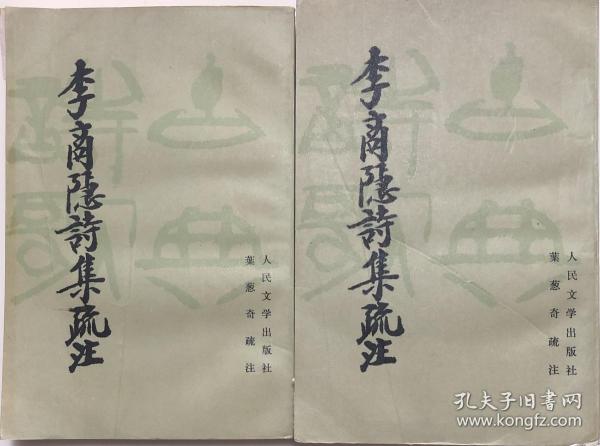 李商隐詩集疏注
人民文学出版社
葉葱奇疏注
李商隐詩集疏注
人民文学出版社
葉葱奇疏注
孔夫子旧书网
www.kongfz.com